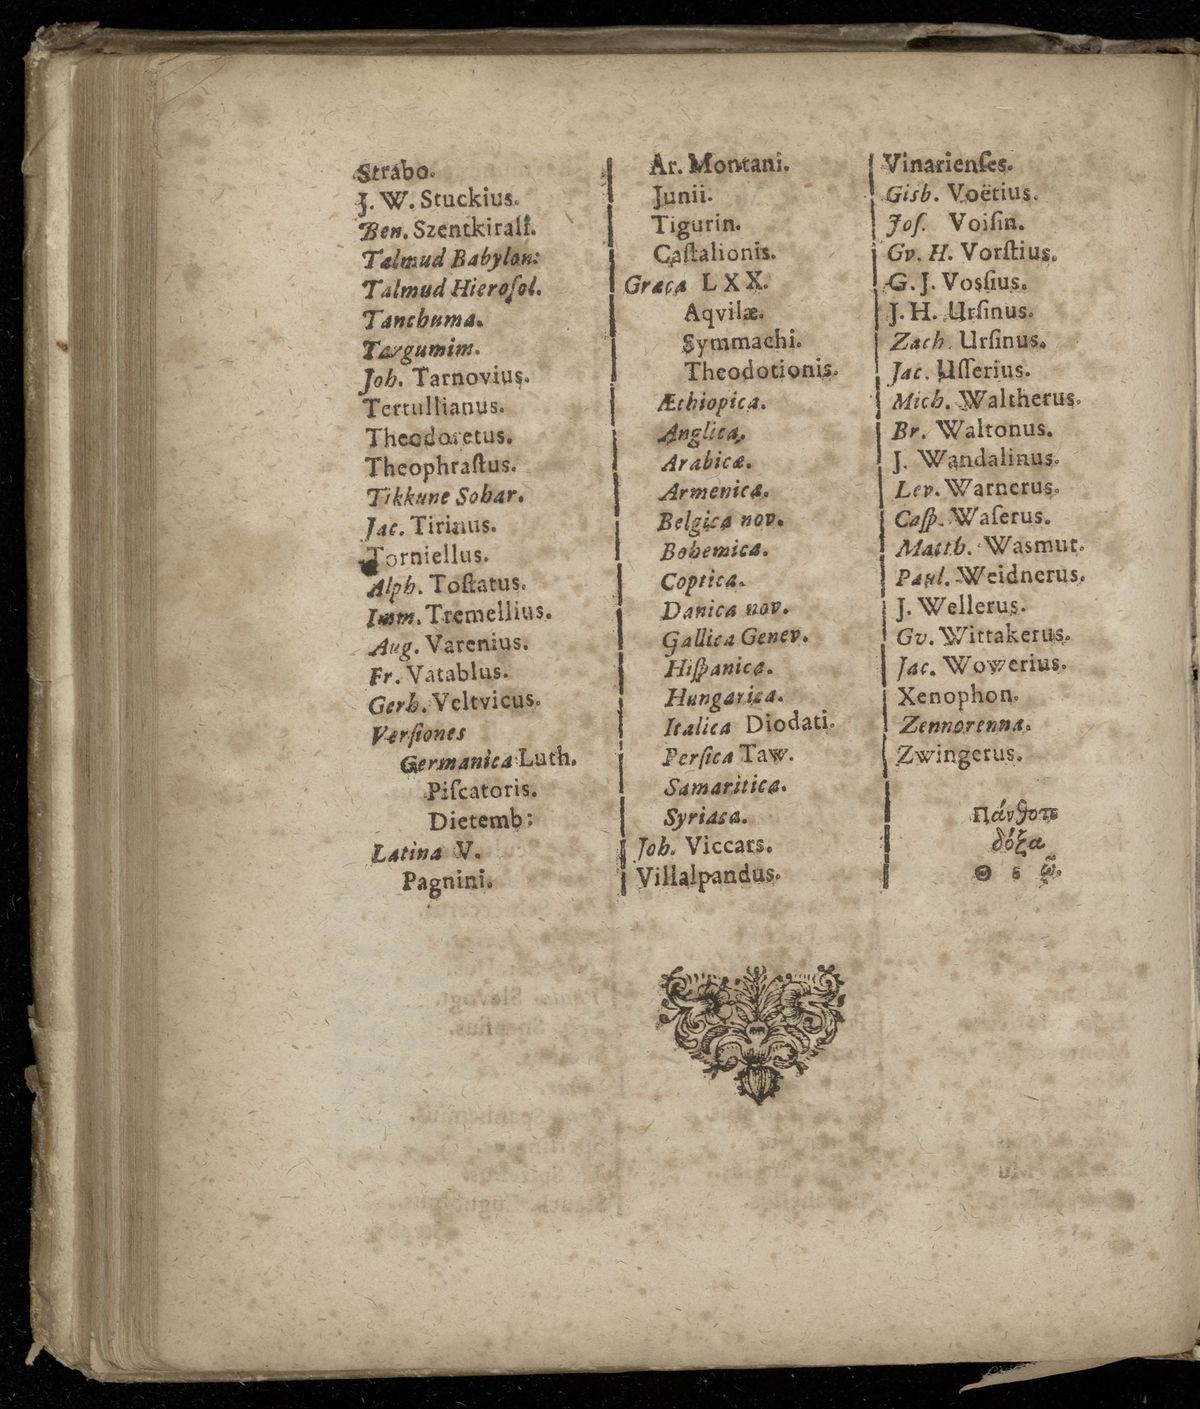 Strabo.
J. W. Stuckius.
Ben. Szentkirali.
Talmud Babylon:
Talmud Hieroſol.
Tanchuma.
Targumim.
Joh. Tarnovius.
Tertullianus.
Theodoretus.
Theophraſtus.
Tikkune Sohar.
Jac. Tirinus.
Torniellus.
Alph. Toſtatus.
Imm. Tremellius.
Aug. Varenius.
Fr. Vatablus.
Gerh. Veltvicus.
Verſiones
Germanica Luth.
Piſcatoris.
Dietemb:
Latina V.
Pagnini.
Ar. Montani.
Junii.
Tigurin.
Caſtalionis.
Græca LXX.
Aqvilæ.
Symmachi.
Theodotionis.
Æthiopica.
Anglica,
Arabicæ.
Armenica.
Belgica nov.
Bohemica.
Coptica.
Danica nov.
Gallica Genev.
Hiſpanica.
Hungarica.
Italica Diodati.
Perſica Taw.
Samaritica.
Syriaca.
Joh. Viccars.
Villalpandus.
Vinarienſes.
Gisb. Voëtius.
Joſ. Voiſin.
Gv. H. Vorſtius.
G. J. Voſſius.
J. H. Urſinus.
Zach. Urſinus.
Jac. Uſſerius.
Mich. Waltherus.
Br. Waltonus.
J. Wandalinus.
Lev. Warnerus.
Caſp. Waſerus.
Matth. Wasmut.
Paul. Weidnerus.
J. Wellerus.
Gv. Wittakerus.
Jac. Wowerius.
Xenophon.
Zennorenna.
Zwingerus.
δόξα